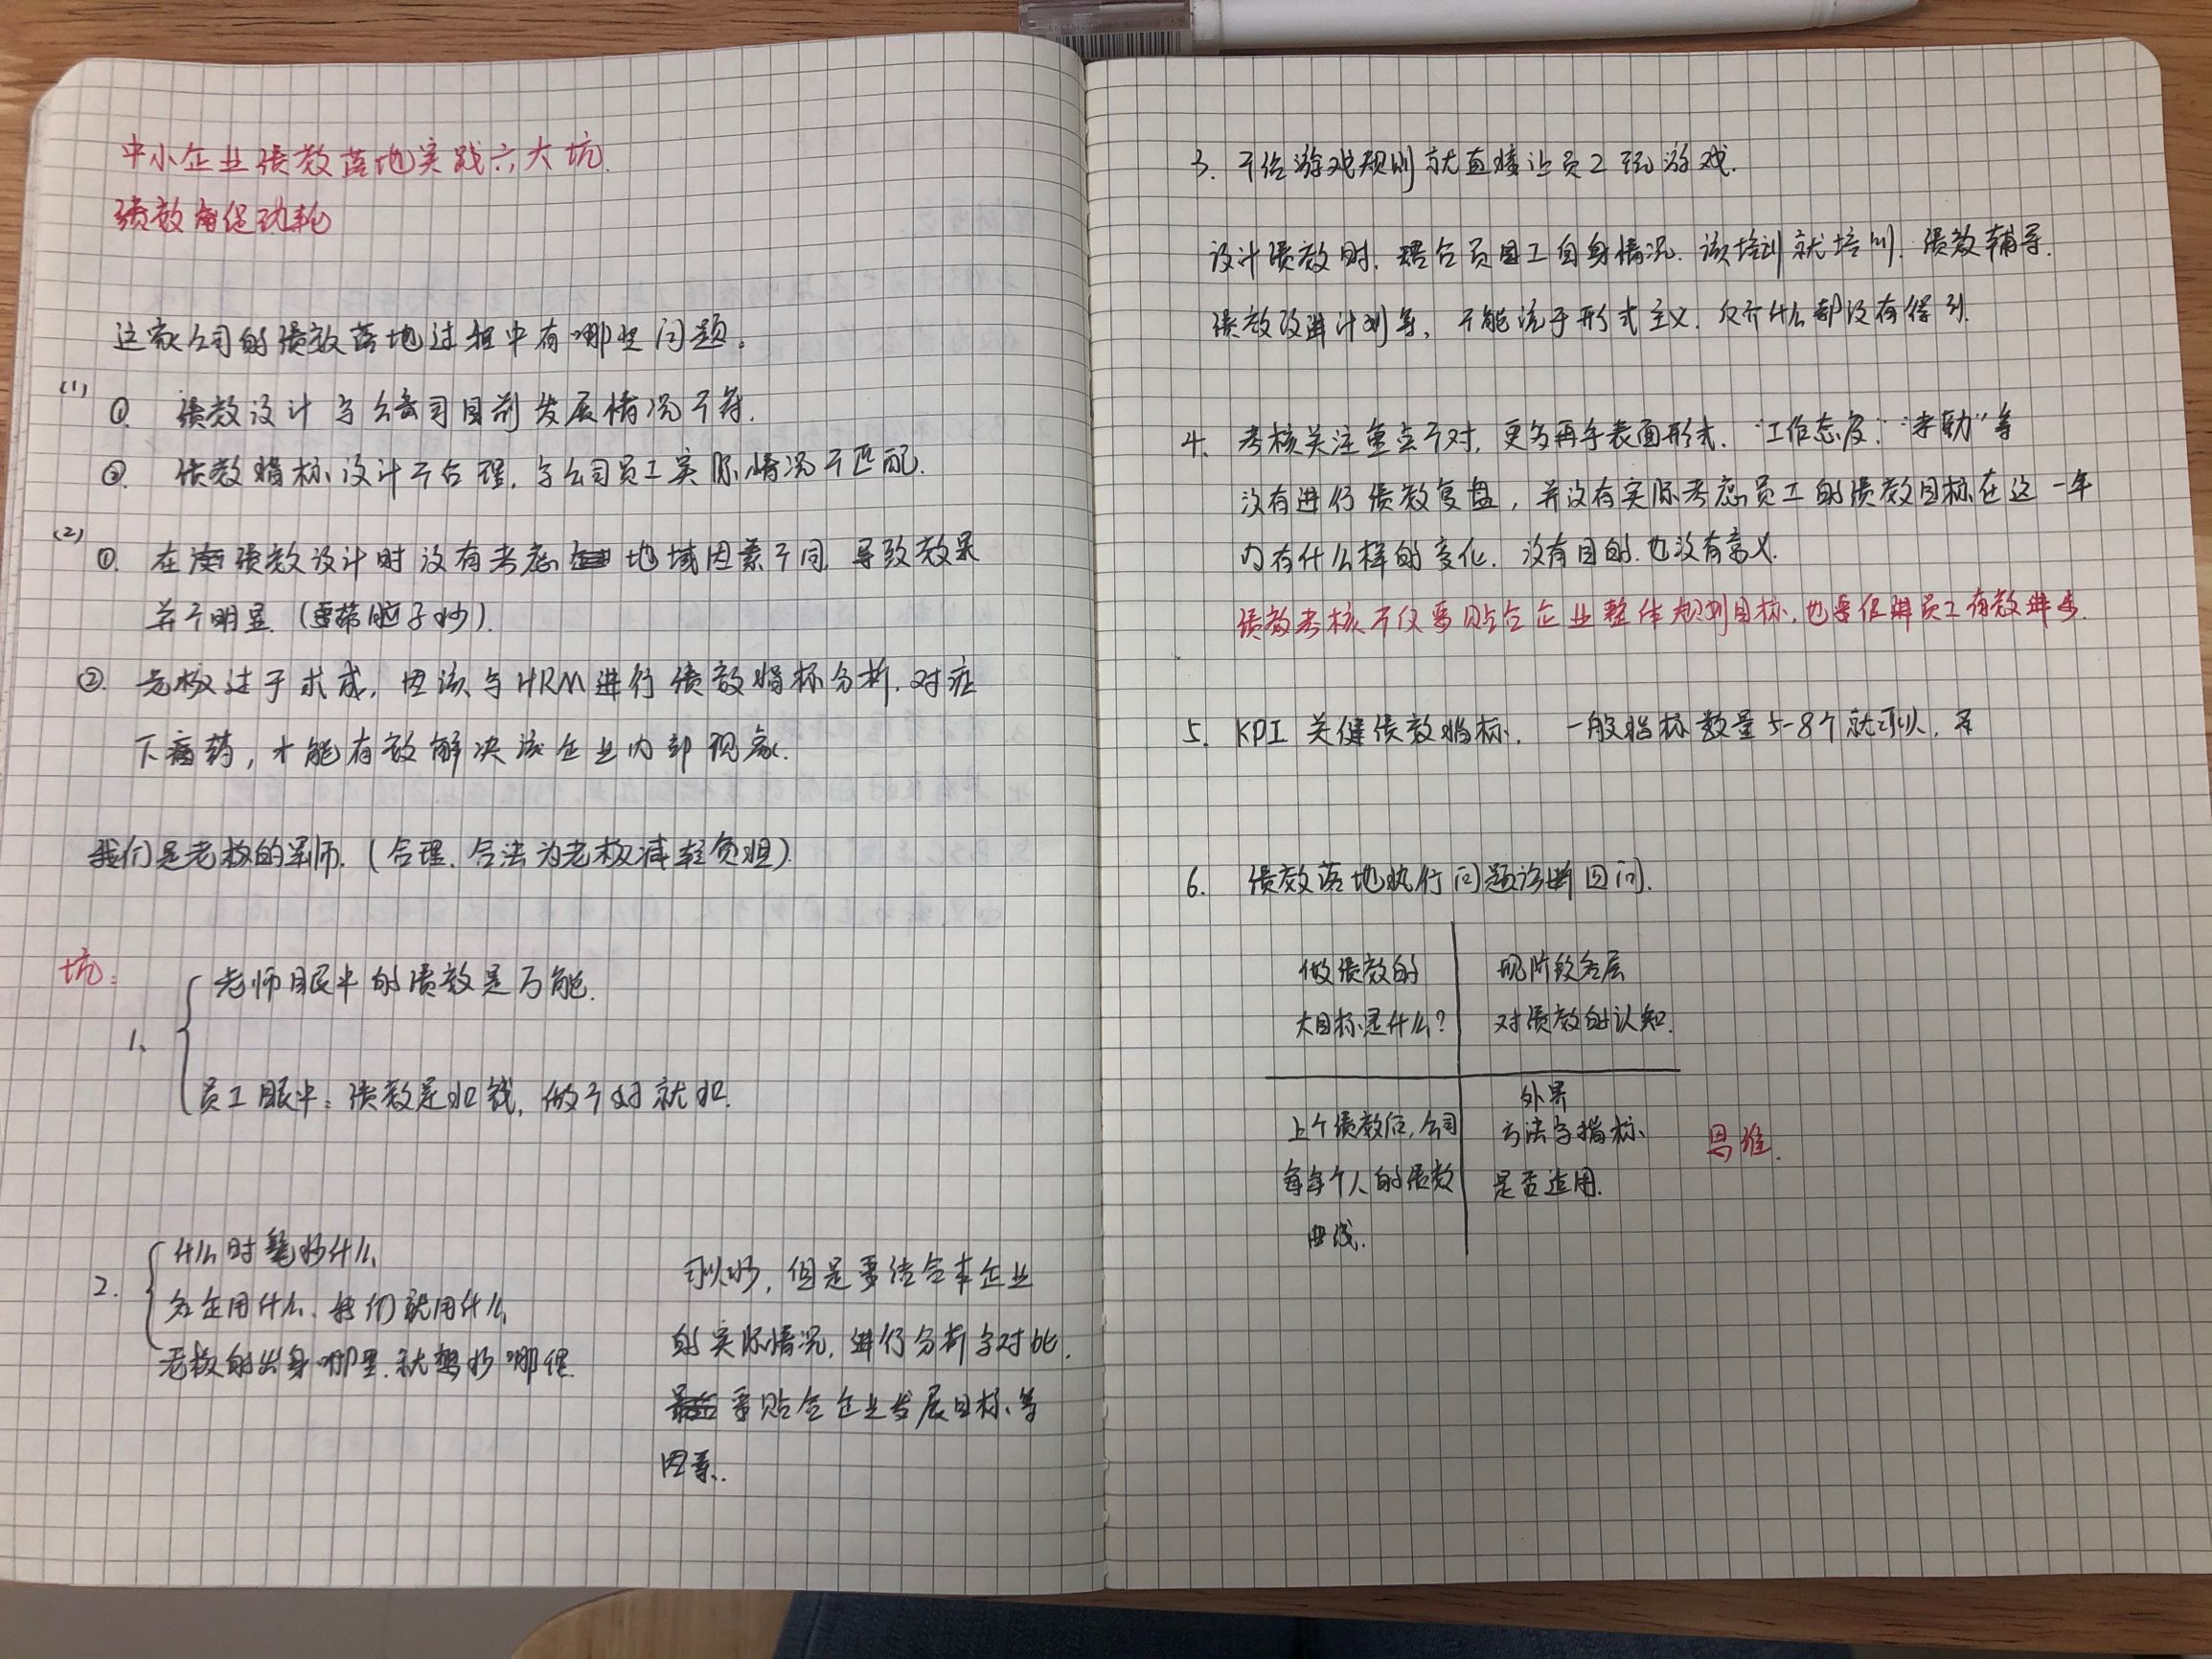 中小企业绩效落地实践六大坑.
绩效 促动轮
这家公司的绩效落地过程中有哪些问题。
(1) ① 绩效设计与公司目前发展情况不符.
② 绩效指标设计不合理,与公司员工实际情况不匹配.
(2) ① 在 绩效设计时没有考虑 地域因素不同,导致效果
并不明显.(要带脑子抄).
② 老板过于求成,因该与HRM进行绩效指标分析.对症
下 药,才能有效解决该企业内部现象.
我们是老板的军师.(合理.合法为老板减轻负担)
坑:
1、 老师眼中的绩效是万能.
员工眼中:绩效是扣钱,做不好就扣.
2. 什么时髦抄什么
名企用什么、我们就用什么
老板的出身哪里.就想抄哪里
可以抄,但是要结合本企业
的实际情况,进行分析与对比.
要贴合企业发展目标、等
因素.
3. 不给游戏规则就直接让员工玩游戏.
设计绩效时.结合员工自身情况.该培训就培训.绩效辅导.
绩效改进计划等,不能流于形式主义.分析什么都没有得到.
4、考核关注重点不对,更多再乎表面形式.“工作态度”.“考勤”等
没有进行绩效复盘,并没有实际考虑员工的绩效目标在这一年
内有什么样的变化.没有目的.也没有意义.
绩效考核不仅要贴合企业整体规划目标,也要促进员工有效进步.
5. KPI 关健绩效指标. 一般指标数量5-8个就可以,不
6. 绩效落地执行问题诊断四问.
做绩效的
大目标是什么?
现阶段各层
对绩效的认知.
上个绩效后,公司
每年个人的绩效
曲线.
外界
方法与指标
是否适用.
思维.